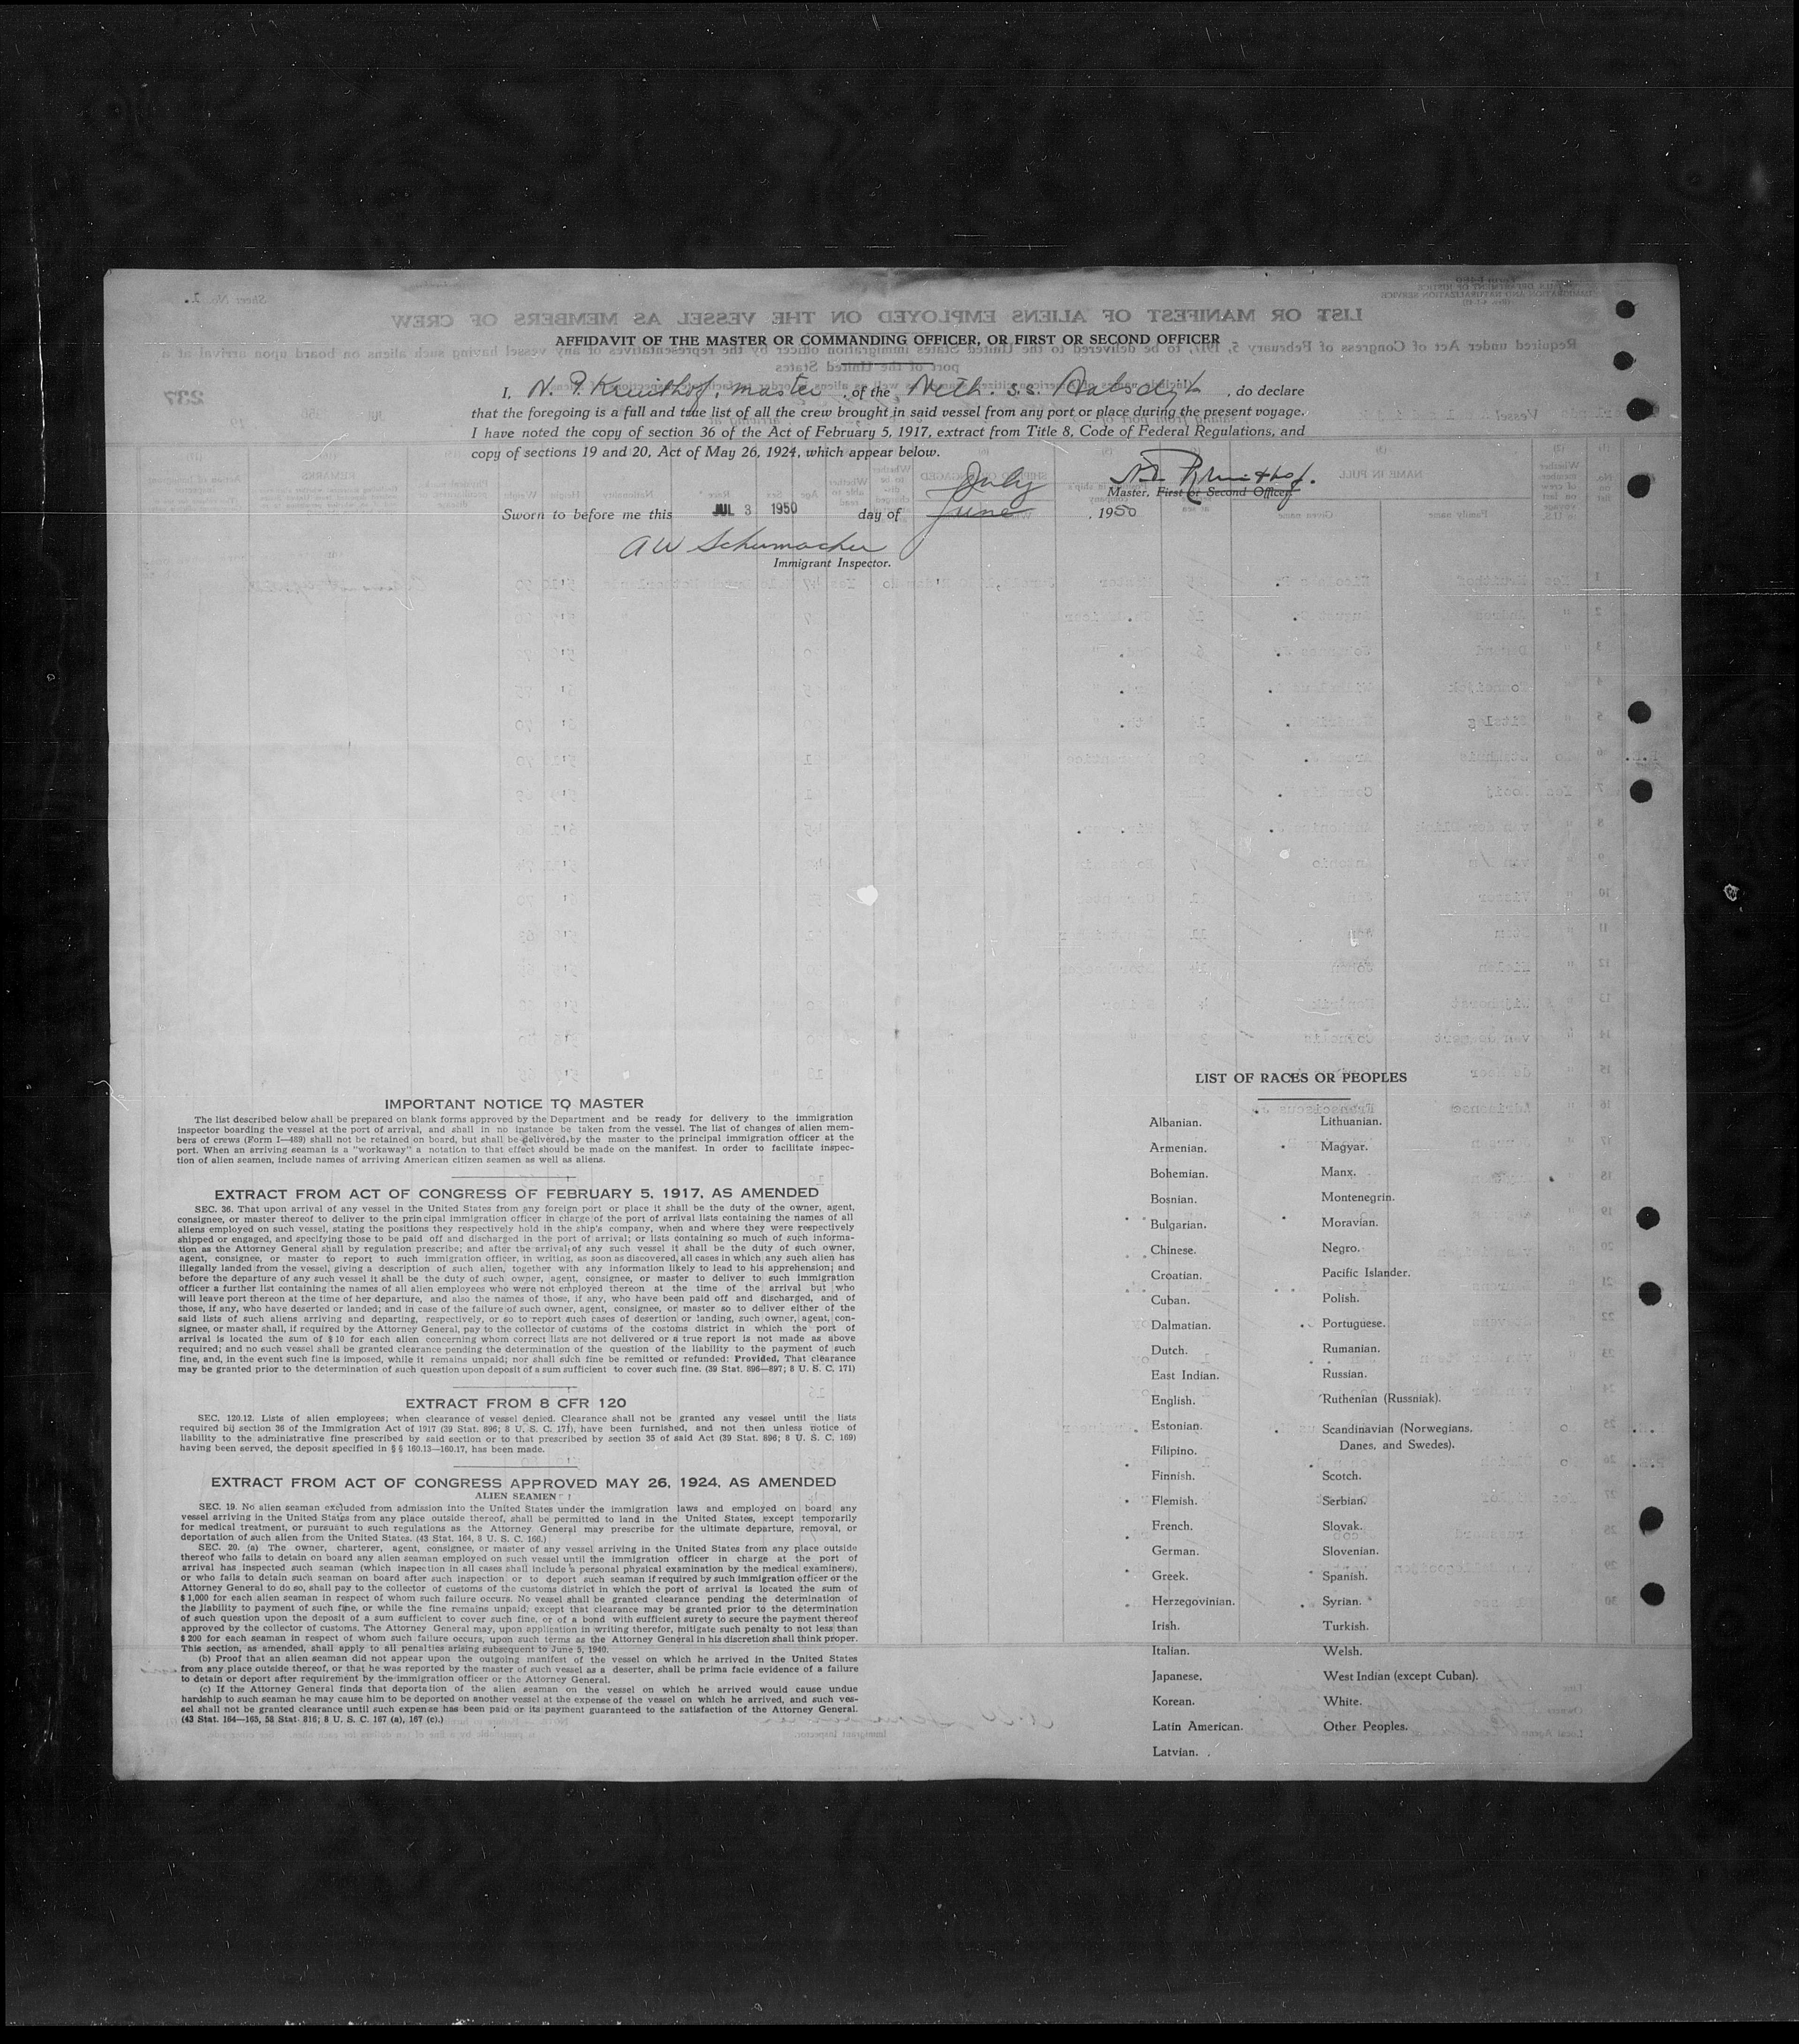 AFFIDAVIT OF THE MASTER OR COMMANDING OFFICER, OR FIRST OR SECOND OFFICER
I, N. P. Kruithof, master, of the Neth. s.s. Aalsdyk, do declare
that the foregoing is a full and true list of all the crew brought in said vessel from any port or place during the present voyage.
I have noted the copy of section 36 of the Act of February 5, 1917, extract from Title 8, Code of Federal Regulations, and
copy of sections 19 and 20, Act of May 26, 1924, which appear below.
Master, First or Second Officer
July
Sworn to before me this JUL 3 1950 day of June, 1950
A W Schumacher
Immigrant Inspector.
IMPORTANT NOTICE TO MASTER
The list described below shall be prepared on blank forms approved by the Department and be ready for delivery to the immigration
inspector boarding the vessel at the port of arrival, and shall in no instance be taken from the vessel. The list of changes of alien mem-
bers of crews (Form I—489) shall not be retained on board, but shall be delivered by the master to the principal immigration officer at the
port. When an arriving seaman is a "workaway" a notation to that effect should be made on the manifest. In order to facilitate inspec-
tion of alien seamen, include names of arriving American citizen seamen as well as aliens.
EXTRACT FROM ACT OF CONGRESS OF FEBRUARY 5, 1917, AS AMENDED
SEC. 36. That upon arrival of any vessel in the United States from any foreign port or place it shall be the duty of the owner, agent,
consignee, or master thereof to deliver to the principal immigration officer in charge of the port of arrival lists containing the names of all
aliens employed on such vessel, stating the positions they respectively hold in the ship's company, when and where they were respectively
shipped or engaged, and specifying those to be paid off and discharged in the port of arrival; or lists containing so much of such informa-
tion as the Attorney General shall by regulation prescribe; and after the arrival of any such vessel it shall be the duty of such owner,
agent, consignee, or master to report to such immigration officer, in writing, as soon as discovered, all cases in which any such alien has
illegally landed from the vessel, giving a description of such alien, together with any information likely to lead to his apprehension; and
before the departure of any such vessel it shall be the duty of such owner, agent, consignee, or master to deliver to such immigration
officer a further list containing the names of all alien employees who were not employed thereon at the time of the arrival but who
will leave port thereon at the time of her departure, and also the names of those, if any, who have been paid off and discharged, and of
those, if any, who have deserted or landed; and in case of the failure of such owner, agent, consignee, or master so to deliver either of the
said lists of such aliens arriving and departing, respectively, or so to report such cases of desertion or landing, such owner, agent, con-
signee, or master shall, if required by the Attorney General, pay to the collector of customs of the customs district in which the port of
arrival is located the sum of $10 for each alien concerning whom correct lists are not delivered or a true report is not made as above
required; and no such vessel shall be granted clearance pending the determination of the question of the liability to the payment of such
fine, and, in the event such fine is imposed, while it remains unpaid; nor shall such fine be remitted or refunded: Provided, That clearance
may be granted prior to the determination of such question upon deposit of a sum sufficient to cover such fine. (39 Stat. 896—897; 8 U. S. C. 171)
EXTRACT FROM 8 CFR 120
SEC. 120.12. Lists of alien employees; when clearance of vessel denied. Clearance shall not be granted any vessel until the lists
required bij section 36 of the Immigration Act of 1917 (39 Stat. 896; 8 U. S. C. 171), have been furnished, and not then unless notice of
liability to the administrative fine prescribed by said section or to that prescribed by section 35 of said Act (39 Stat. 896; 8 U. S. C. 169)
having been served, the deposit specified in §§ 160.13—160.17, has been made.
EXTRACT FROM ACT OF CONGRESS APPROVED MAY 26, 1924, AS AMENDED
ALIEN SEAMEN
SEC. 19. No alien seaman excluded from admission into the United States under the immigration laws and employed on board any
vessel arriving in the United States from any place outside thereof, shall be permitted to land in the United States, except temporarily
for medical treatment, or pursuant to such regulations as the Attorney General may prescribe for the ultimate departure, removal, or
deportation of such alien from the United States. (43 Stat. 164, 8 U. S. C. 166.)
SEC. 20. (a) The owner, charterer, agent, consignee, or master of any vessel arriving in the United States from any place outside
thereof who fails to detain on board any alien seaman employed on such vessel until the immigration officer in charge at the port of
arrival has inspected such seaman (which inspection in all cases shall include a personal physical examination by the medical examiners),
or who fails to detain such seaman on board after such inspection or to deport such seaman if required by such immigration officer or the
Attorney General to do so, shall pay to the collector of customs of the customs district in which the port of arrival is located the sum of
$1,000 for each alien seaman in respect of whom such failure occurs. No vessel shall be granted clearance pending the determination of
the liability to payment of such fine, or while the fine remains unpaid; except that clearance may be granted prior to the determination
of such question upon the deposit of a sum sufficient to cover such fine, or of a bond with sufficient surety to secure the payment thereof
approved by the collector of customs. The Attorney General may, upon application in writing therefor, mitigate such penalty to not less than
$200 for each seaman in respect of whom such failure occurs, upon such terms as the Attorney General in his discretion shall think proper.
This section, as amended, shall apply to all penalties arising subsequent to June 5, 1940.
(b) Proof that an alien seaman did not appear upon the outgoing manifest of the vessel on which he arrived in the United States
from any place outside thereof, or that he was reported by the master of such vessel as a deserter, shall be prima facie evidence of a failure
to detain or deport after requirement by the immigration officer or the Attorney General.
(c) If the Attorney General finds that deportation of the alien seaman on the vessel on which he arrived would cause undue
hardship to such seaman he may cause him to be deported on another vessel at the expense of the vessel on which he arrived, and such ves-
sel shall not be granted clearance until such expense has been paid or its payment guaranteed to the satisfaction of the Attorney General.
(43 Stat. 164—165, 58 Stat. 816; 8 U. S. C. 167 (a), 167 (c).)
LIST OF RACES OR PEOPLES
Albanian.
Armenian.
Bohemian.
Bosnian.
Bulgarian.
Chinese.
Croatian.
Cuban.
Dalmatian.
Dutch.
East Indian.
English.
Estonian.
Filipino.
Finnish.
Flemish.
French.
German.
Greek.
Herzegovinian.
Irish.
Italian.
Japanese.
Korean.
Latin American.
Latvian.
Lithuanian.
Magyar.
Manx.
Montenegrin.
Moravian.
Negro.
Pacific Islander.
Polish.
Portuguese.
Rumanian.
Russian.
Ruthenian (Russniak).
Scandinavian (Norwegians,
Danes, and Swedes).
Scotch.
Serbian.
Slovak.
Slovenian.
Spanish.
Syrian.
Turkish.
Welsh.
West Indian (except Cuban).
White.
Other Peoples.